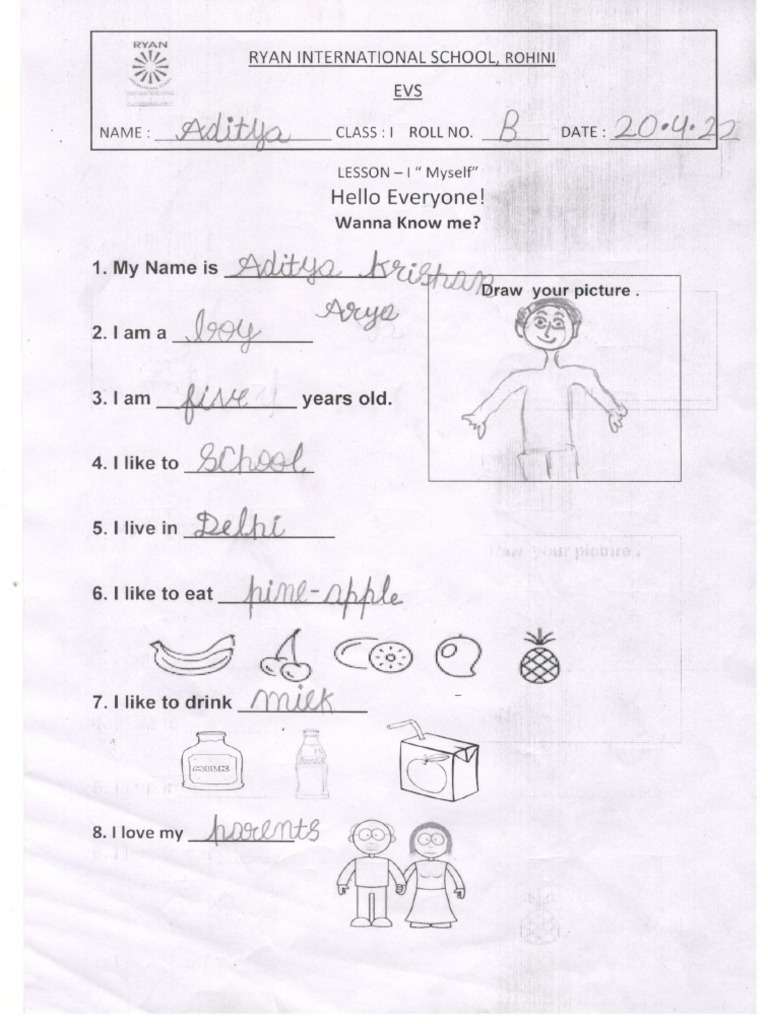 RYAN
RYAN INTERNATIONAL SCHOOL, ROHINI
EVS
NAME : Aditya CLASS : I ROLL NO. B DATE : 20.4.22
LESSON – I “ Myself”
Hello Everyone!
Wanna Know me?
1. My Name is Aditya Krishan
Arya
Draw your picture .
2. I am a boy
3. I am five years old.
4. I like to School
5. I live in Delhi
6. I like to eat pine-apple
7. I like to drink milk
MILK
8. I love my parents